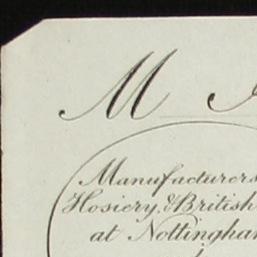 M
Manufacturers
Hosiery, & British
at Nottingham